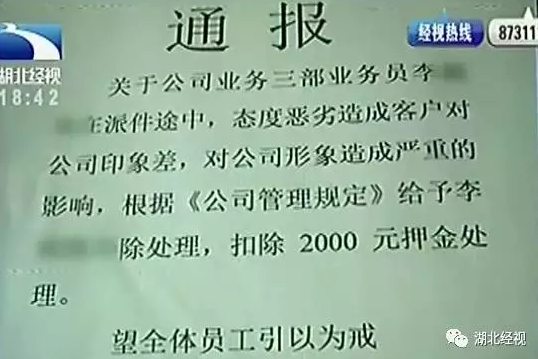 通报
经视热线
87311
湖北经视
18:42
关于公司业务三部业务员李
在派件途中，态度恶劣造成客户对
公司印象差，对公司形象造成严重的
影响，根据《公司管理规定》给予李
除处理，扣除 2000 元押金处
理。
望全体员工引以为戒
湖北经视